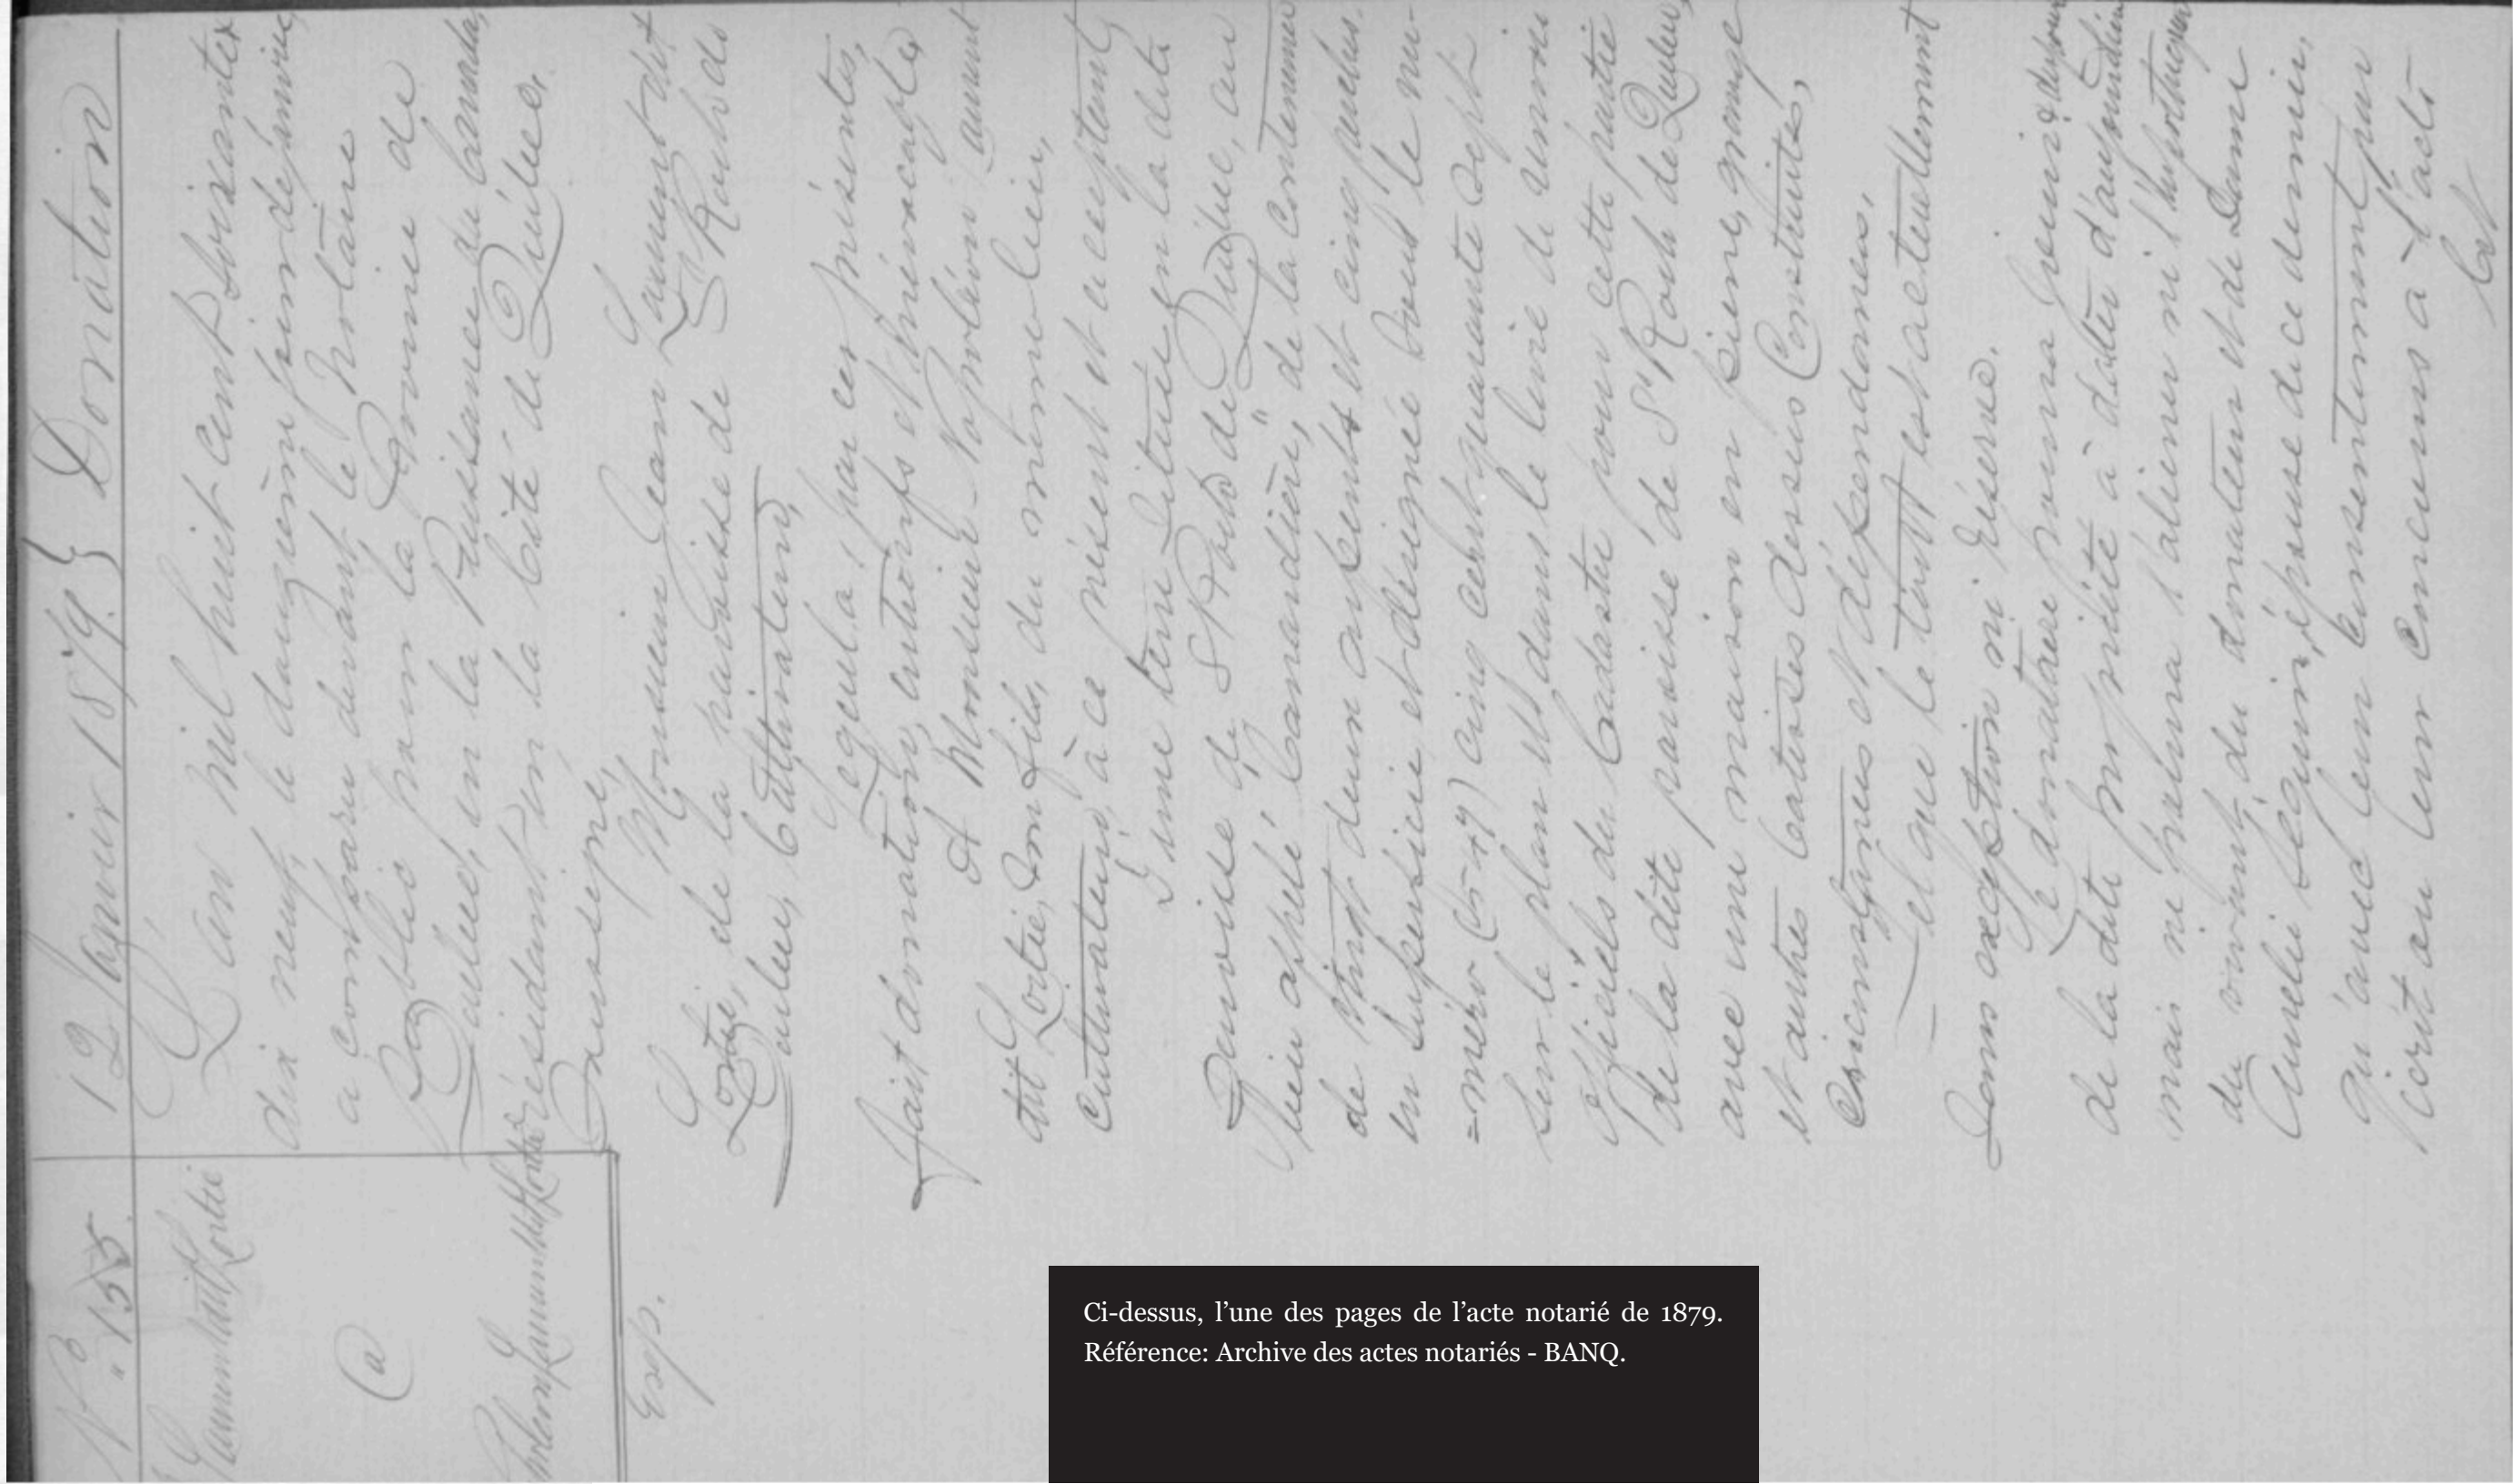 N° 155.
12 Janvier 1879 } Donation
Laurent dit Lortie
@
Napoléon Laurent dit Lortie
Exp.
L'an mil huit cent soixante &
dix neuf, le douzième jour de janvier,
a comparu devant le Notaire
Public pour la Province de
Québec, en la Puissance du Canada,
résidant en la Cité de Québec,
soussigné,
Monsieur Jean Laurent dit
Lortie, de la paroisse de St Roch de
Québec, Cultivateur,
Lequel a, par ces présentes,
fait donation, entrevifs et irrévocable,
A Monsieur Napoléon Laurent
dit Lortie, son fils, du même lieu,
Cultivateur, à ce présent et acceptant,
D'une terre située en la dite
paroisse de St Roch de Québec, au
lieu appelé Canardière, de la contenance
de vingt deux arpents et cinq perches
en superficie et désignée sous le nu-
=méro (547) cinq cent quarante sept
sur le plan et dans le livre de renvois
officiels du Cadastre pour cette partie
de la dite paroisse de St Roch de Québec,
avec une maison en pierre, grange
et autres batisses dessus construites,
circonstances et dépendances,
— et que le tout est actuellement
sans exception ni réserve.
Le donataire pourra jouir & disposer
de la dite propriété à dater d'aujourd'hui
mais ne pourra l'aliener ni l'hypothéquer
du vivant du donateur et de Dame
épouse de ce dernier,
qu'avec leur consentement par
écrit ou leur concours à l'acte
Cet
Ci-dessus, l'une des pages de l'acte notarié de 1879.
Référence: Archive des actes notariés - BANQ.